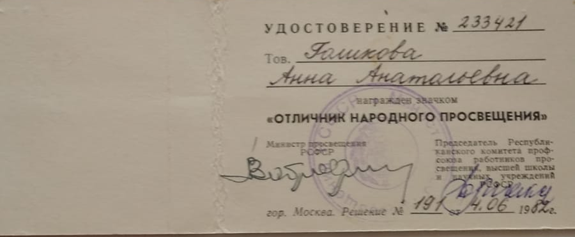 УДОСТОВЕРЕНИЕ № 233421
Тов. Гашкова
Анна Анатольевна
награжден значком
«ОТЛИЧНИК НАРОДНОГО ПРОСВЕЩЕНИЯ»
Министр просвещения
РСФСР
Председатель Республи-
канского комитета проф-
союза работников про-
свещения, высшей школы
и научных учреждений
гор. Москва. Решение № 191 4.06 1982г.